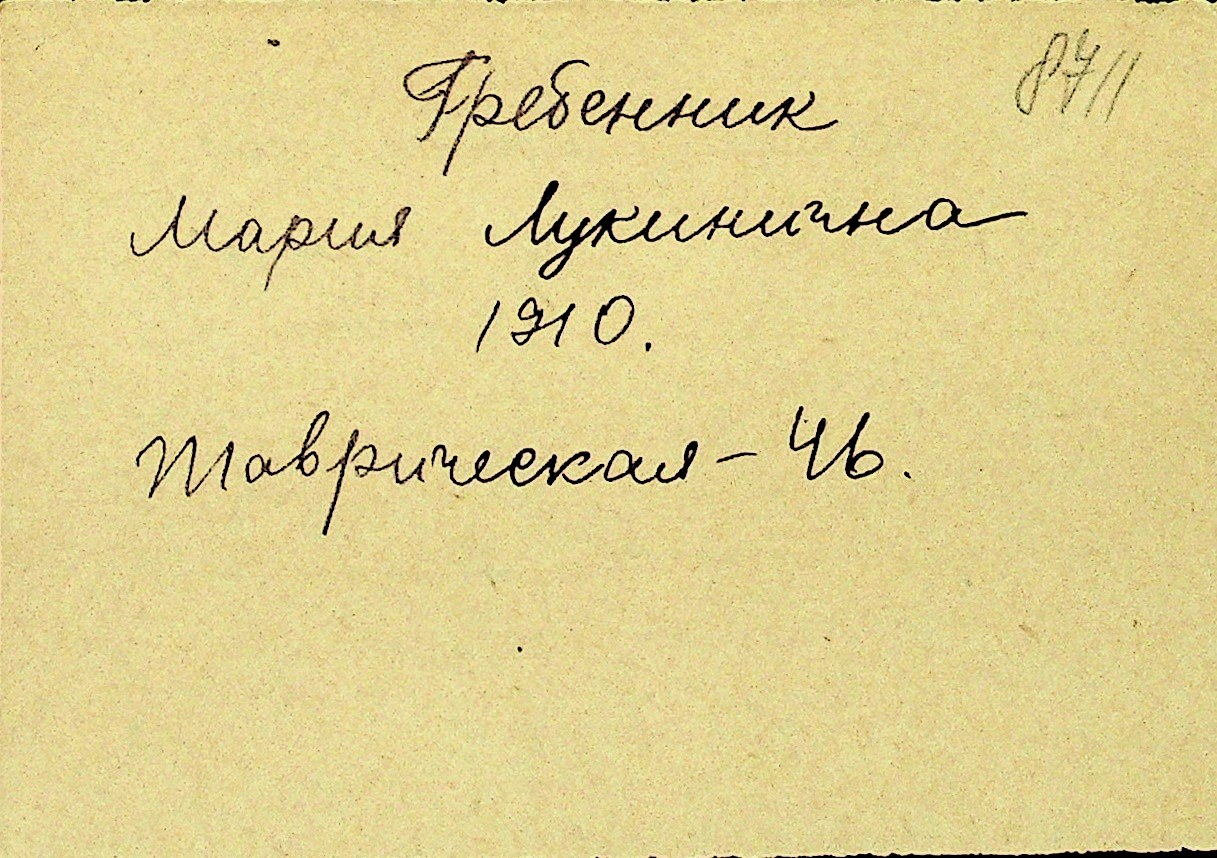 8711
Гребенник
Мария Лукинична
1910.
Таврическая - 46.